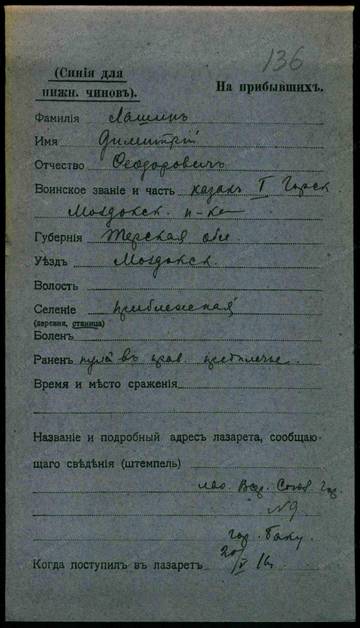 136
(Синія для
нижн. чиновъ).
На прибывшихъ.
Фамилія Лашинъ
Имя Димитрій
Отчество Ѳеодоровичъ
Воинское званіе и часть казакъ I Горск
Моздокск. п-ка
Губернія Терская обл
Уѣздъ Моздокск.
Волость
Селеніе Приближская
(деревня, станица)
Боленъ
Раненъ пулей въ прав. предплечье.
Время и мѣсто сраженія
Названіе и подробный адресъ лазарета, сообщаю-
щаго свѣдѣнія (штемпель)
лаз. Всер. Союза Гор.
№9
гор. Баку
Когда поступилъ въ лазаретъ 20/V 16